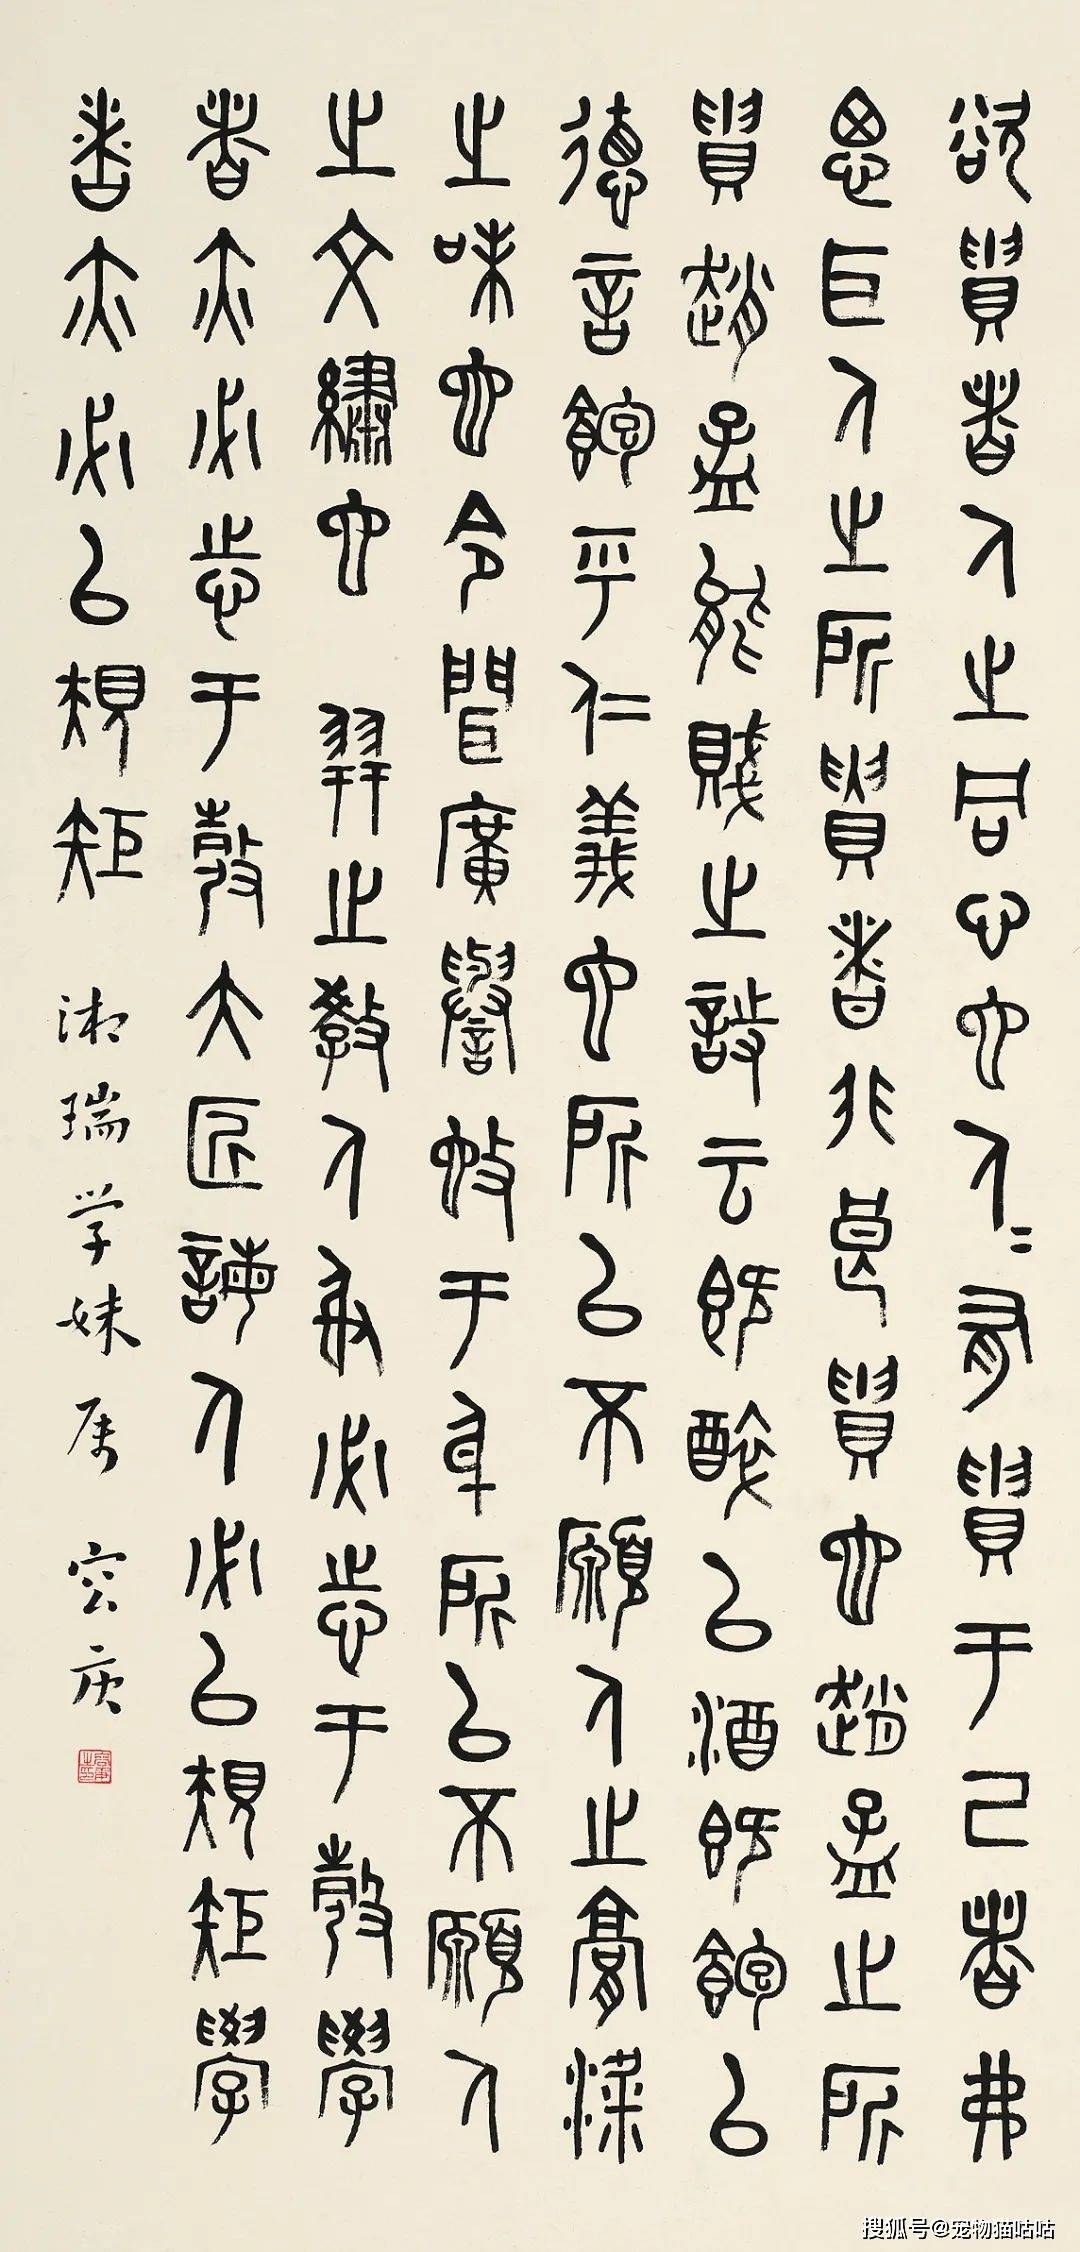 欲貴者人之同心也人＝有貴于己者弗
思耳人之所貴者非良貴也趙孟之所
貴趙孟能賤之詩云既醉以酒既飽以
德言飽乎仁義也所以不願人之膏粱
之味也令聞廣譽施于身所以不願人
之文繡也 羿之教人射必志于彀學
者亦必志于彀大匠誨人必以規矩學
者亦必以規矩 湘瑞学妹属 容庚
搜狐号@宠物猫咕咕